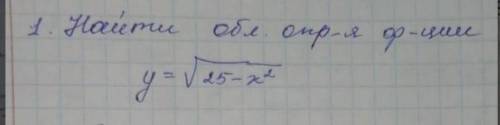 1. Найти обл. опр-я ф-ции
y = √25-x²